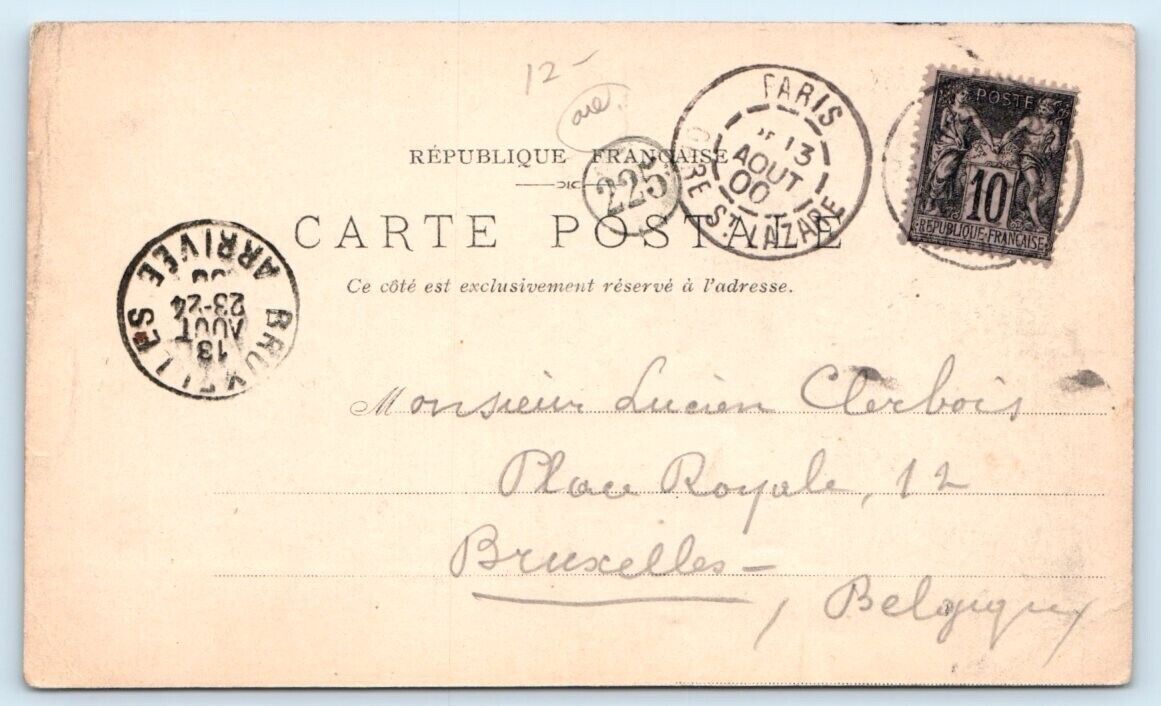 12-
RÉPUBLIQUE FRANÇAISE
225
PARIS
13
AOUT
00
GARE ST LAZARE
POSTE
10
REPUBLIQUE-FRANÇAISE
CARTE POSTALE
Ce côté est exclusivement réservé à l'adresse.
BRUXELLES
13
AOUT
23-24
00
ARRIVÉE
Monsieur Lucien Clerbois
Place Royale, 12
Bruxelles-
, Belgique